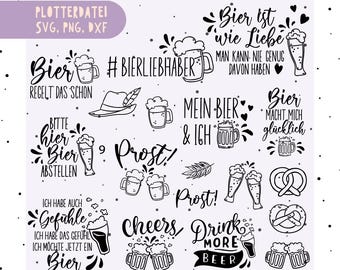 PLOTTERDATEI
SVG, PNG, DXF
Bier
REGELT DAS SCHON
#BIERLIEBHABER
Bier ist
wie Liebe
MAN KANN NIE GENUG
DAVON HABEN
MEIN BIER
& ICH
Bier
MACHT MICH
glücklich
BITTE
hier
Bier
ABSTELLEN
9
Prost!
Prost!
ICH HABE AUCH
Gefühle
ICH HABE DAS GEFÜHL
ICH MÖCHTE JETZT EIN
Bier
Cheers
Drink
MORE
BEER